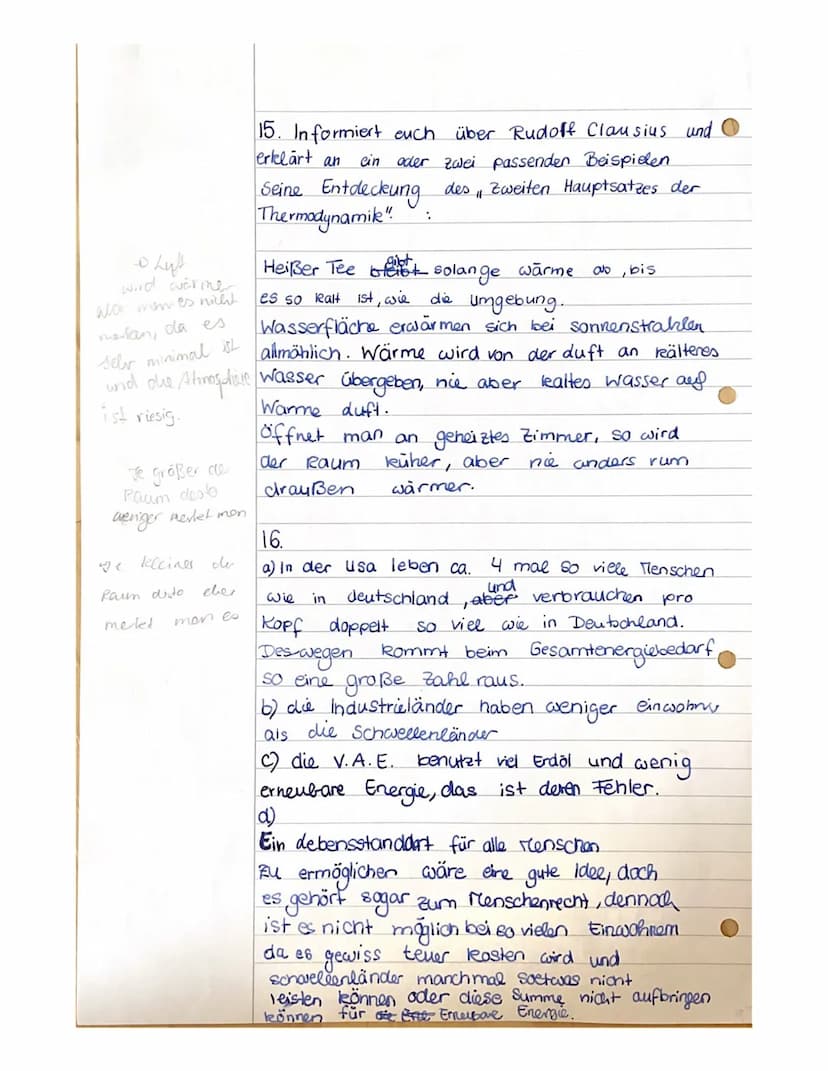 15. Informiert euch über Rudolf Clausius und
erklärt an ein oder zwei passenden Beispielen
seine Entdeckung des „Zweiten Hauptsatzes der
Thermodynamik". :
Heißer Tee gibt solange wärme ab, bis
es so kalt ist, wie die Umgebung.
Wasserfläche erwärmen sich bei sonnenstrahlen
allmählich. Wärme wird von der duft an kälteres
Wasser übergeben, nie aber kaltes Wasser auf
Warme duft.
Öffnet man an geheiztes Zimmer, so wird
der Raum küher, aber nie anders rum
draußen wärmer.
→ Luft
wird wärme
man es nicht
merken, da es
sehr minimal ist
und die Atmosphäre
ist riesig.
Je größer der
Raum desto
weniger merket man
Je kleiner der
Raum desto eher
merket man es
16.
a) In der Usa leben ca. 4 mal so viele Menschen
wie in deutschland, und verbrauchen pro
Kopf doppelt so viel wie in Deutschland.
Deswegen kommt beim Gesamtenergiebedarf
so eine große Zahl raus.
b) die Industrieländer haben weniger einwohner
als die Schwellenländer
c) die V.A.E. benutzt viel Erdöl und wenig
erneubare Energie, das ist deren Fehler.
d)
Ein debensstandart für alle Menschen
zu ermöglichen wäre eine gute Idee, doch
es gehört sogar zum Menschenrecht, dennoch
ist es nicht möglich bei so vielen Einwohnern
da es gewiss teuer kosten wird und
schwellenländer manchmal soetwas nicht
leisten können oder diese Summe nicht aufbringen
können für Erneubare Energie.